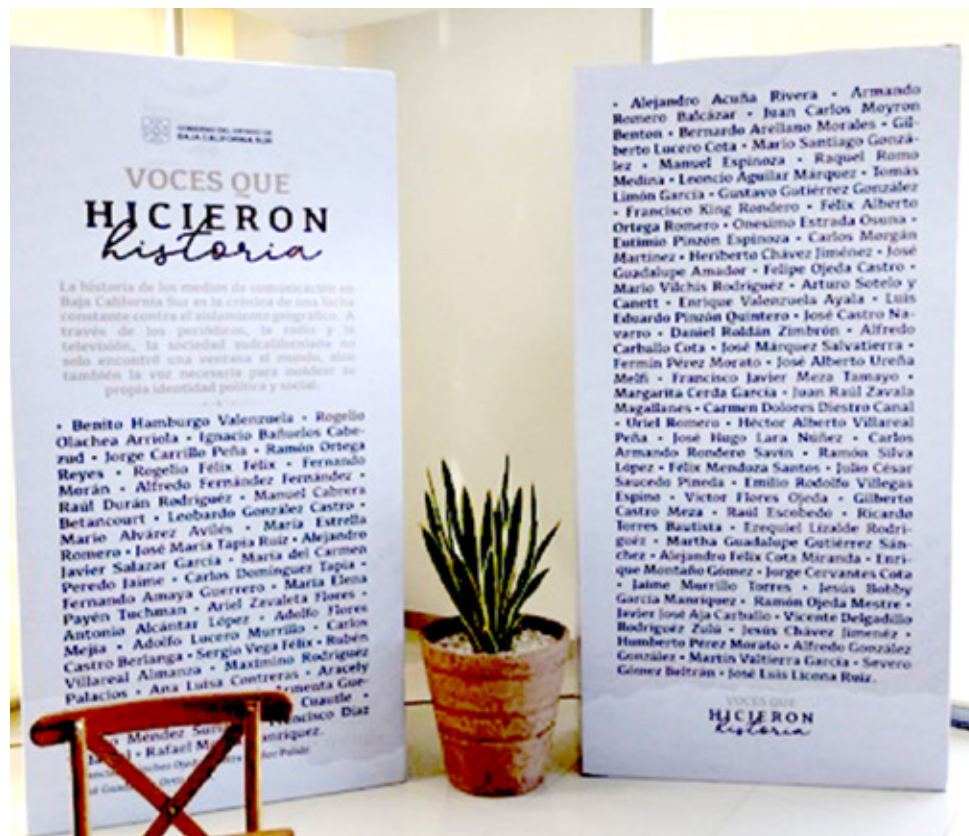 GOBIERNO DEL ESTADO DE
BAJA CALIFORNIA SUR
VOCES QUE
HICIERON
historia
La historia de los medios de comunicación en
Baja California Sur es la crónica de una lucha
constante contra el aislamiento geográfico. A
través de los periódicos, la radio y la
televisión, la sociedad sudcaliforniana no
solo encontró una ventana al mundo, sino
también la voz necesaria para moldear su
propia identidad política y social.
• Benito Hamburgo Valenzuela • Rogelio
Olachea Arriola • Ignacio Bañuelos Cabe-
zud • Jorge Carrillo Peña • Ramón Ortega
Reyes • Rogelio Félix Félix • Fernando
Morán • Alfredo Fernández Fernández •
Raúl Durán Rodríguez • Manuel Cabrera
Betancourt • Leobardo González Castro •
Mario Alvárez Avilés • María Estrella
Romero • José María Tapia Ruiz • Alejandro
Javier Salazar García • María del Carmen
Peredo Jaime • Carlos Domínguez Tapia •
Fernando Amaya Guerrero • María Elena
Payén Tuchman • Ariel Zavaleta Flores •
Antonio Alcántar López • Adolfo Flores
Mejía • Adolfo Lucero Murrillo • Carlos
Castro Berlanga • Sergio Vega Félix • Rubén
Villareal Almanza • Maximino Rodríguez
Palacios • Ana Luisa Contreras • Aracely
Gue-
Cuautle •
Méndez Díaz
• Rafael
• Alejandro Acuña Rivera • Armando
Romero Balcázar • Juan Carlos Moyron
Benton • Bernardo Arellano Morales • Gil-
berto Lucero Cota • Mario Santiago Gonzá-
lez • Manuel Espinoza • Raquel Romo
Medina • Leoncio Aguilar Márquez • Tomás
Limón García • Gustavo Gutiérrez González
• Francisco King Rondero • Félix Alberto
Ortega Romero • Onesimo Estrada Osuna •
Eutimio Pinzón Espinoza • Carlos Morgán
Martínez • Heriberto Chávez Jiménez • José
Guadalupe Amador • Felipe Ojeda Castro •
Mario Vilchis Rodríguez • Arturo Sotelo y
Canett • Enrique Valenzuela Ayala • Luis
Eduardo Pinzón Quintero • José Castro Na-
varro • Daniel Roldán Zimbrón • Alfredo
Carballo Cota • José Márquez Salvatierra •
Fermín Pérez Morato • José Alberto Ureña
Melfi • Francisco Javier Meza Tamayo •
Margarita Cerda García • Juan Raúl Zavala
Magallanes • Carmen Dolores Diestro Canal
• Uriel Romero • Héctor Alberto Villareal
Peña • José Hugo Lara Núñez • Carlos
Armando Rondero Savin • Ramón Silva
López • Félix Mendoza Santos • Julio César
Saucedo Pineda • Emilio Rodolfo Villegas
Espino • Víctor Flores Ojeda • Gilberto
Castro Meza • Raúl Escobedo • Ricardo
Torres Bautista • Ezequiel Lizalde Rodrí-
guez • Martha Guadalupe Gutiérrez Sán-
chez • Alejandro Félix Cota Miranda • Enri-
que Montaño Gómez • Jorge Cervantes Cota
• Jaime Murrillo Torres • Jesús Bobby
García Manríquez • Ramón Ojeda Mestre •
Javier José Aja Carballo • Vicente Delgadillo
Rodríguez Zulú • Jesús Chávez Jimenéz •
Humberto Pérez Morato • Alfredo González
González • Martín Valtierra García • Severo
Gómez Beltrán • José Luis Licona Ruiz.
VOCES QUE
HICIERON
historia